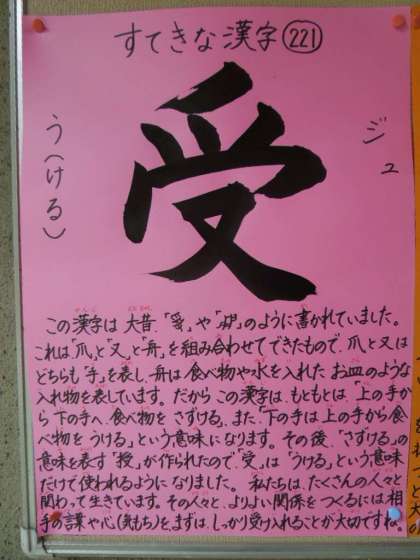 すてきな漢字 221
受
ジュ
う(ける)
この漢字は大昔、「」や「」のように書かれていました。
これは「爪」と「又」と「舟」を組み合わせてできたもので、爪と又は
どちらも「手」を表し、舟は食べ物や水を入れたお皿のような
入れ物を表しています。だからこの漢字は、もともとは、「上の手か
ら下の手へ、食べ物をさずける」、また、「下の手は上の手から食
べ物をうける」という意味になります。その後、「さずける」の
意味を表す「授」が作られたので、「受」は「うける」という意味
だけで使われるようになりました。私たちは、たくさんの人々と
関わって生きています。その人々と、よりよい関係をつくるには相
手の言葉や心(気もち)を、まずは、しっかり受け入れることが大切ですね。